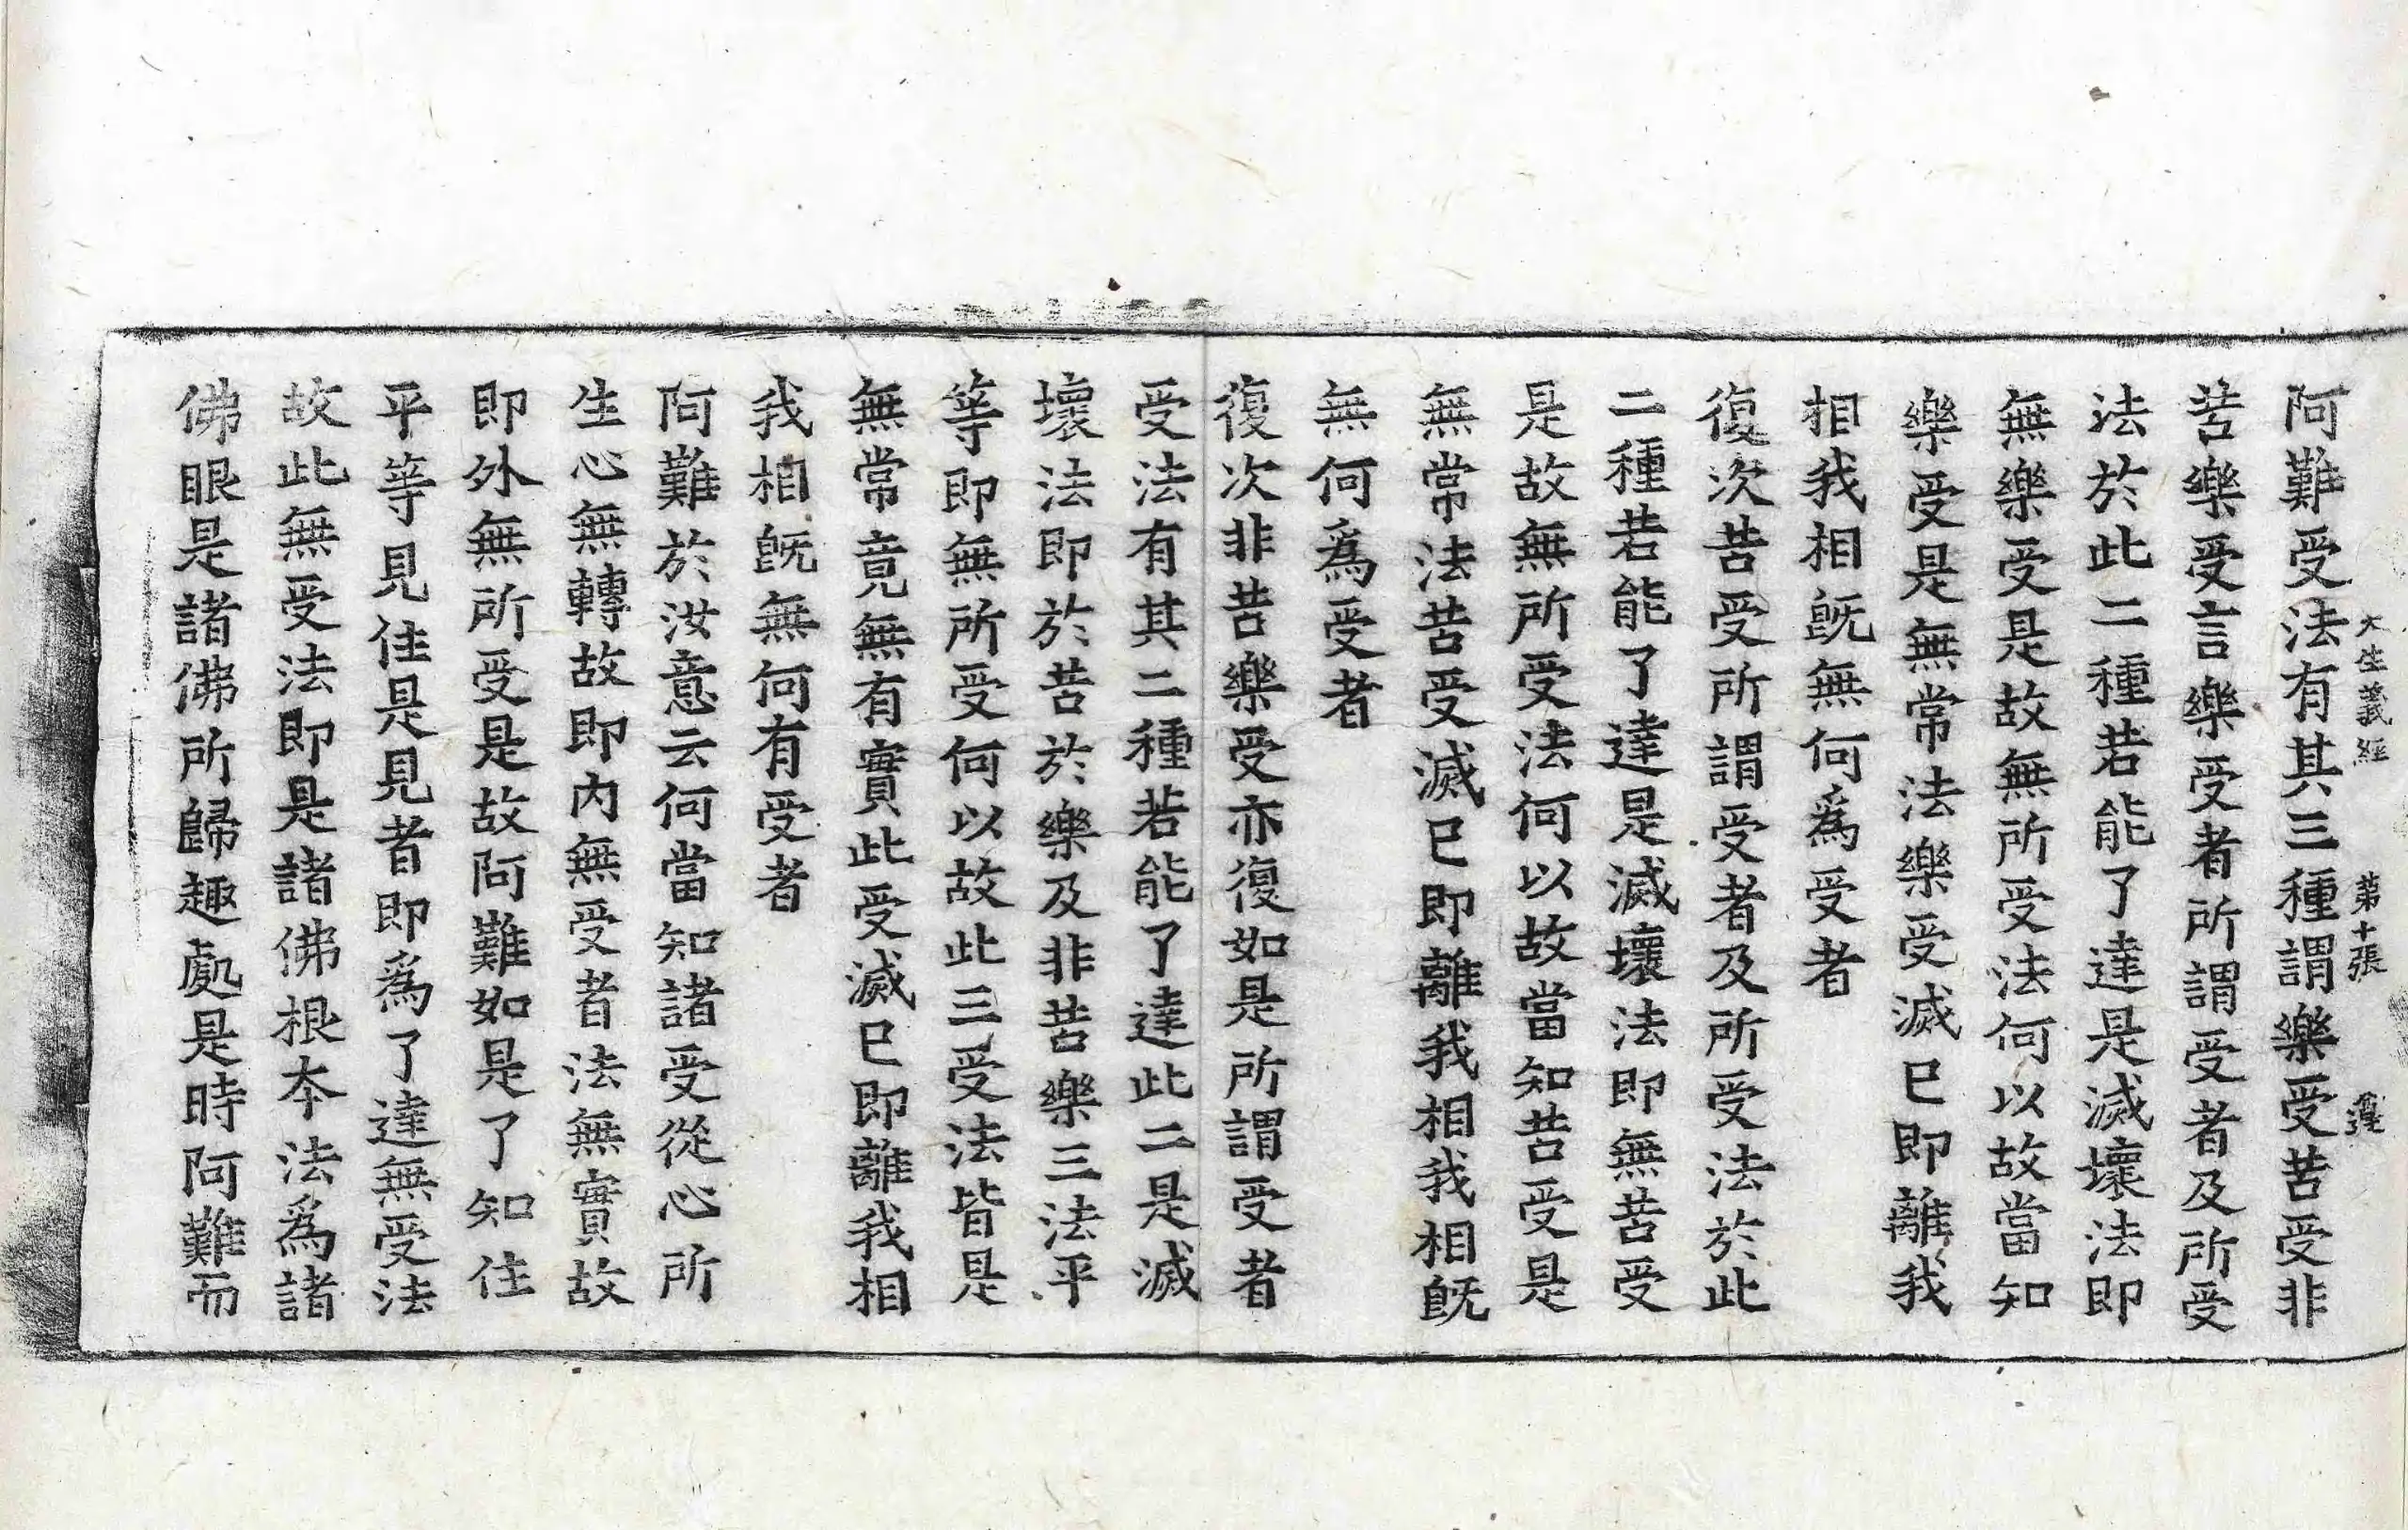 大生義經 第十張
阿難受法有其三種謂樂受苦受非
苦樂受言樂受者所謂受者及所受
法於此二種若能了達是滅壞法即
無樂受是故無所受法何以故當知
樂受是無常法樂受滅已即離我
相我相旣無何爲受者
復次苦受所謂受者及所受法於此
二種若能了達是滅壞法即無苦受
是故無所受法何以故當知苦受是
無常法苦受滅已即離我相我相旣
無何爲受者
復次非苦樂受亦復如是所謂受者
受法有其二種若能了達此二是滅
壞法即於苦於樂及非苦樂三法平
等即無所受何以故此三受法皆是
無常竟無有實此受滅已即離我相
我相旣無何有受者
阿難於汝意云何當知諸受從心所
生心無轉故即內無受者法無實故
即外無所受是故阿難如是了知住
平等見住是見者即爲了達無受法
故此無受法即是諸佛根本法爲諸
佛眼是諸佛所歸趣處是時阿難而